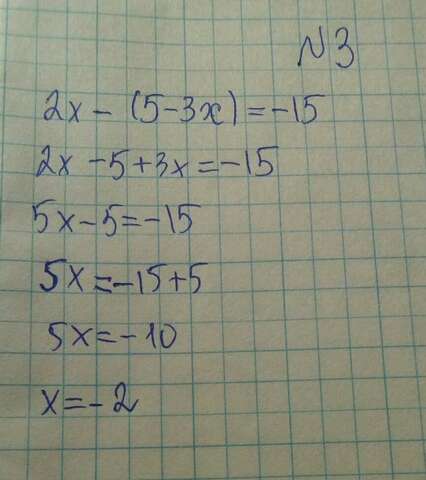 №3
2x - (5-3x) = -15
2x -5+3x = -15
5x-5=-15
5x=-15+5
5x=-10
x=-2